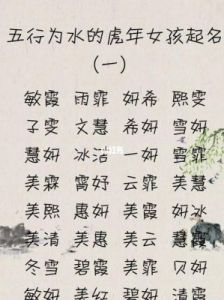 五行为水的虎年女孩起名
（一）
敏霞 雨霏 妍希 熙雯
子雯 文慧 希妍 雪妍
慧妍 冰洁 一妍 雪霏
美霖 霄妤 云霏 美慧
美熙 惠妍 美霞 妍冰
美清 美惠 美云 慧霞
冬雪 碧霞 美霏 贝妍
敏妍 美红 碧妍 清霞